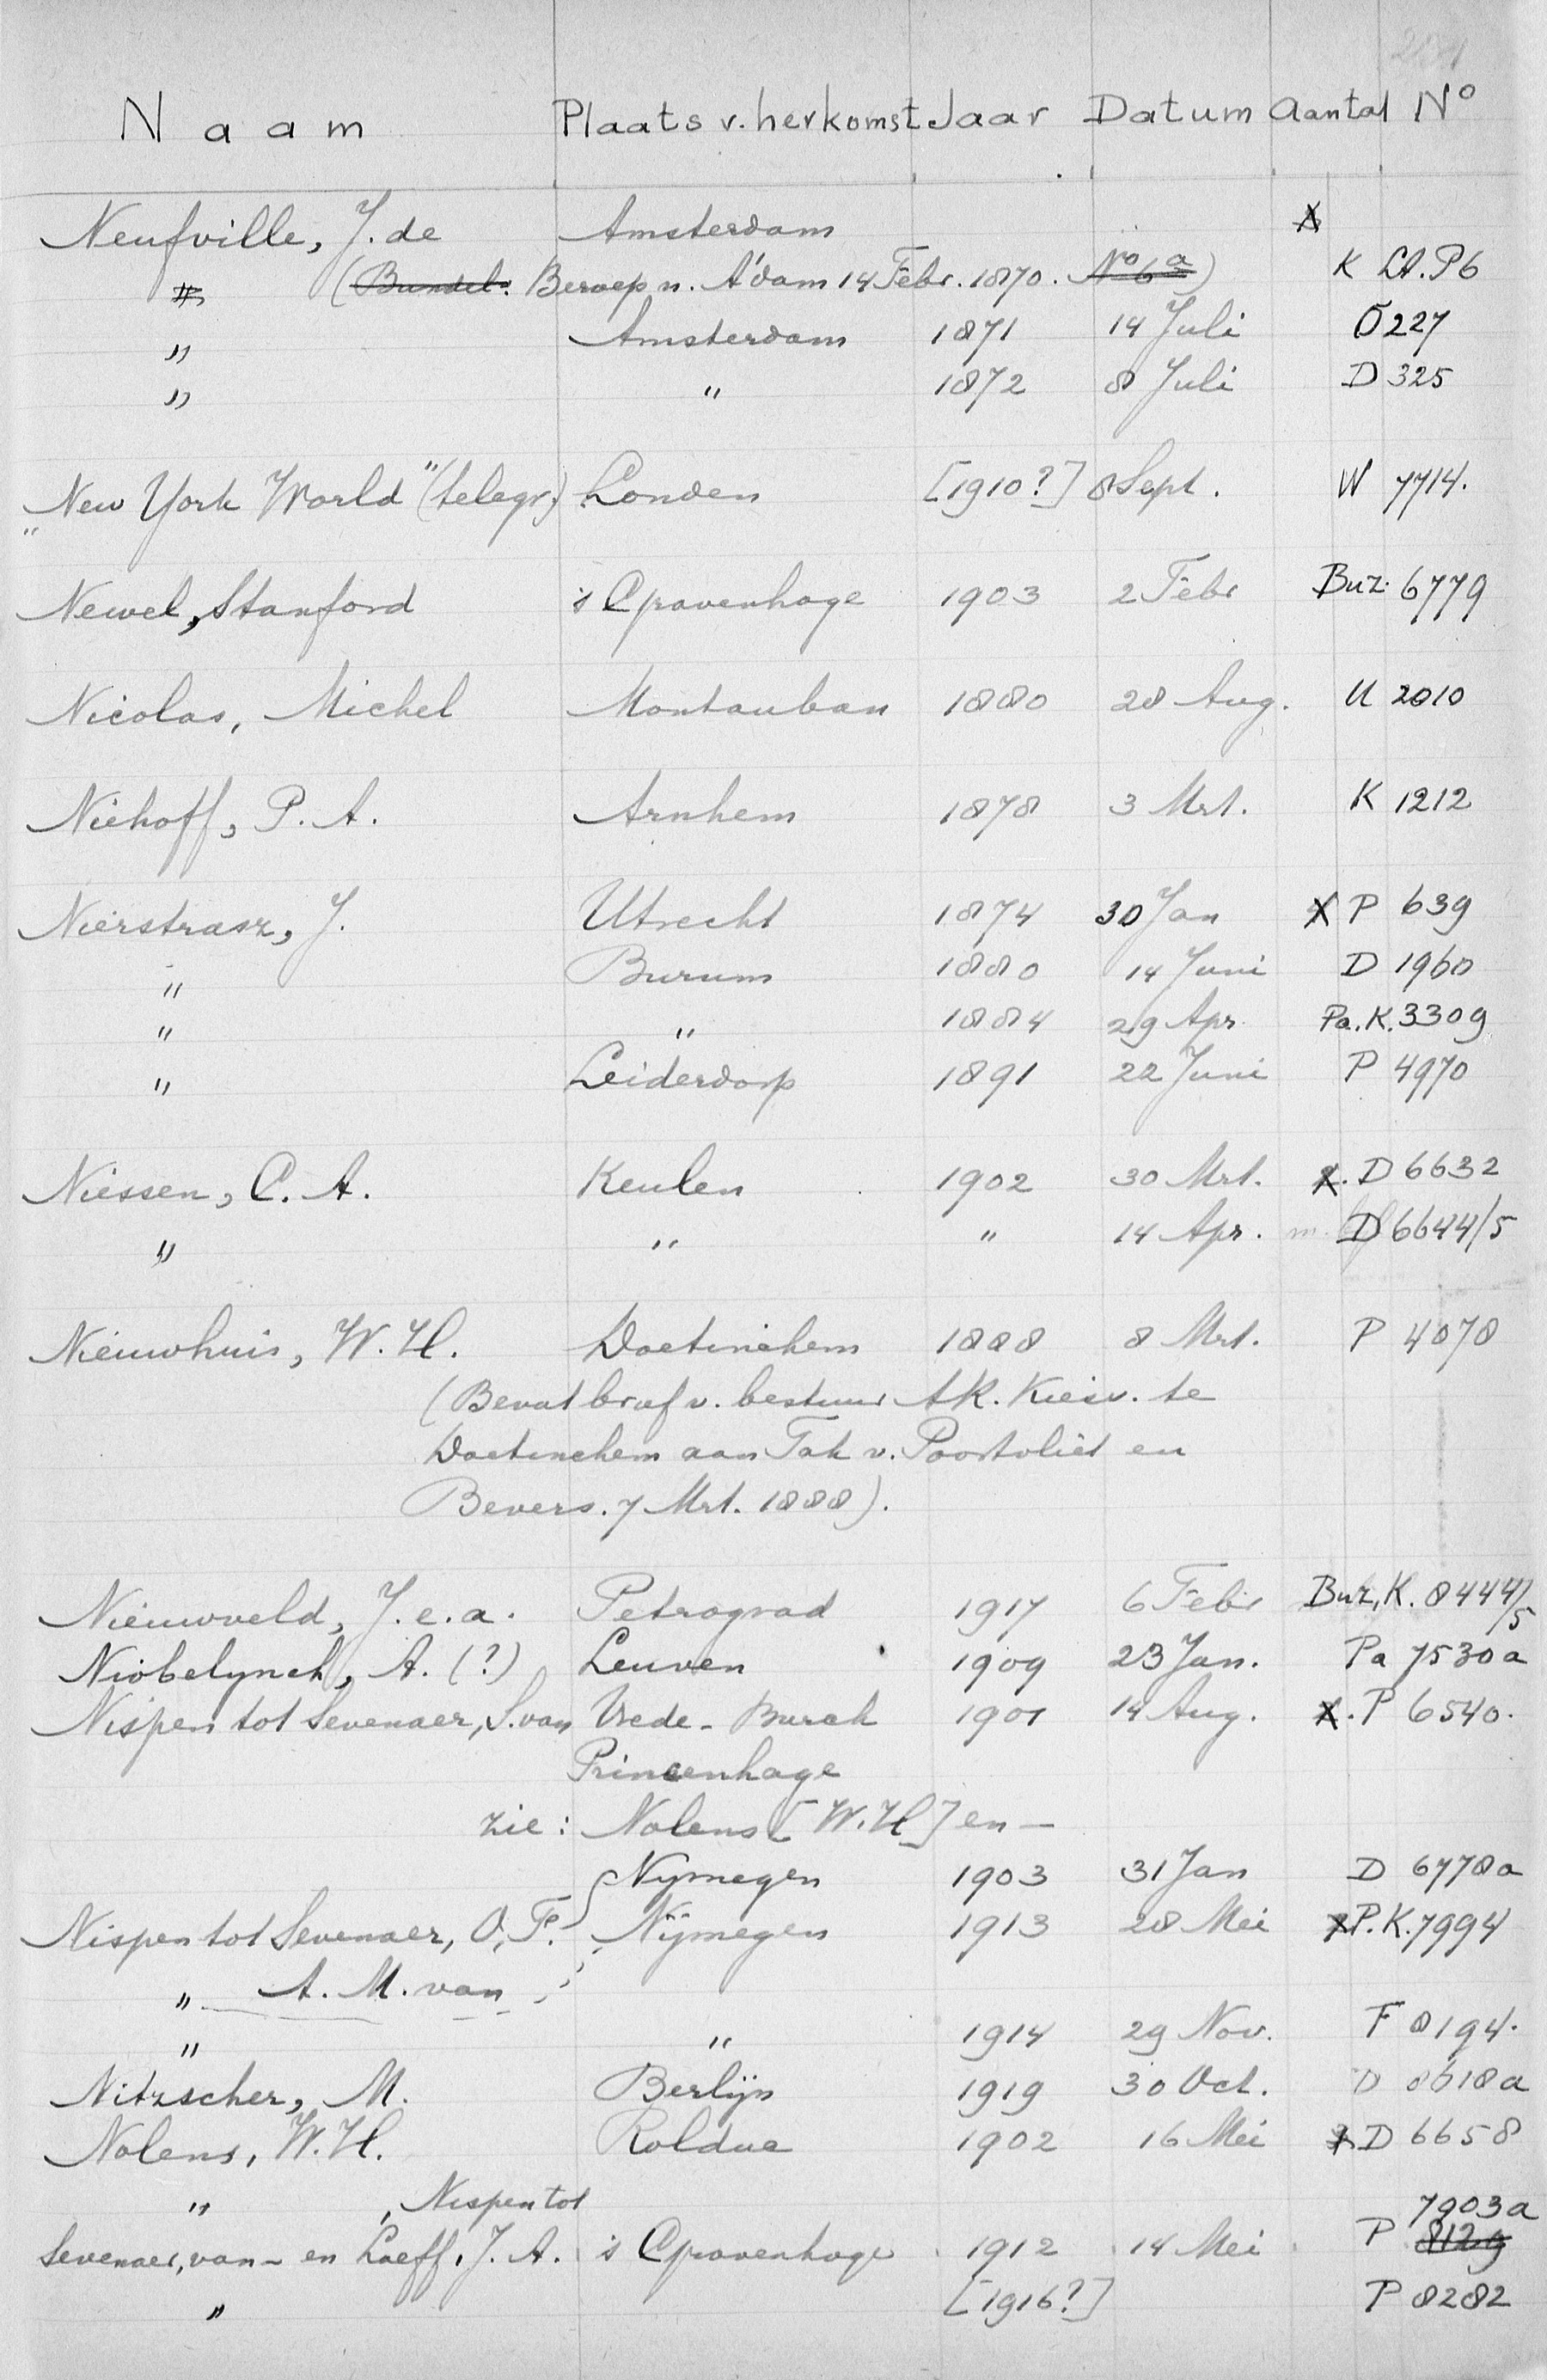 Naam Plaats v. herkomst Jaar Datum Aantal Nº
Neufville, J. de Amsterdam
" (Bundel. Beroep n. A'dam 14 Febr. 1870. Nº 6a) K Lt. P6
" Amsterdam 1871 14 Juli O 227
" " 1872 8 Juli D 325
"New York World" (telegr.) Londen [1910?] 8 Sept. W 7714.
Newel, Stanford 's Gravenhage 1903 2 Febr Buz. 6779
Nicolas, Michel Montauban 1880 28 Aug. U 2010
Niehoff, P. A. Arnhem 1878 3 Mrt. K 1212
Nierstrasz, J. Utrecht 1874 30 Jan P 639
" Burum 1880 14 Juni D 1960
" " 1884 29 Apr Pa. K. 3309
" Leiderdorp 1891 22 Juni P 4970
Niessen, C. A. Keulen 1902 30 Mrt. D 6632
" " " 14 Apr. D 6644/5
Nieuwhuis, W. H. Doetinchem 1888 8 Mrt. P 4078
(Bevat brief v. bestuur AR. Kiesv. te
Doetinchem aan Tak v. Poortvliet en
Bevers. 7 Mrt. 1888).
Nieuwveld, J. e. a. Petrograd 1917 6 Febr Buz, K. 8444/5
Niobelynck, A. (?) Leuven 1909 23 Jan. Pa 7530a
Nispen tot Sevenaer, S. van Vrede-Burch 1901 14 Aug. P 6540.
Princenhage
zie: Nolens [W. H] en —
Nymegen 1903 31 Jan D 6778a
Nispen tot Sevenaer, O. F. Nijmegen 1913 28 Mei P. K. 7994
" A. M. van
" " 1914 29 Nov. F 8194.
Nitzscher, M. Berlijn 1919 30 Oct. D 8618a
Nolens, W. H. Rolduc 1902 16 Mei D 6658
" , Nispen tot 7903a
Sevenaer, van - en Loeff, J. A. 's Gravenhage 1912 14 Mei P 8129
" [1916?] P 8282